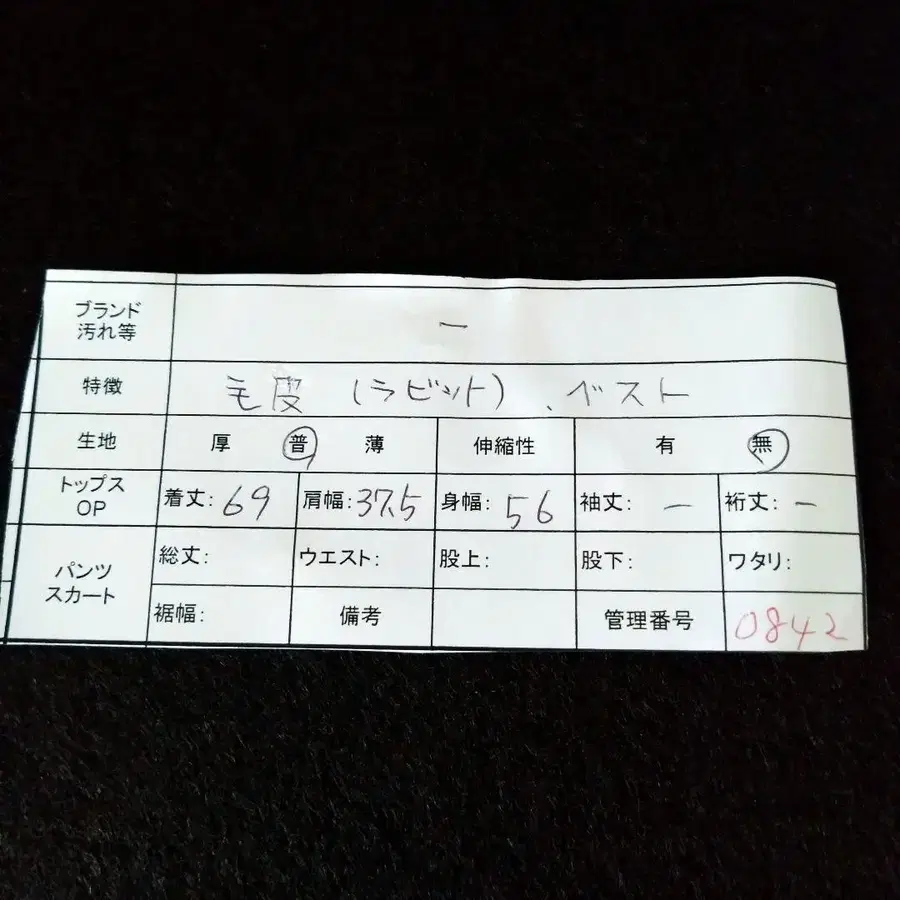 ブランド
汚れ等
ー
特徴 毛皮 (ラビット)、ベスト
生地 厚 普 薄 伸縮性 有 無
トップス
OP
着丈: 69 肩幅: 37.5 身幅: 56 袖丈: ー 裄丈: ー
パンツ
スカート
総丈: ウエスト: 股上: 股下: ワタリ:
裾幅: 備考 管理番号 0842